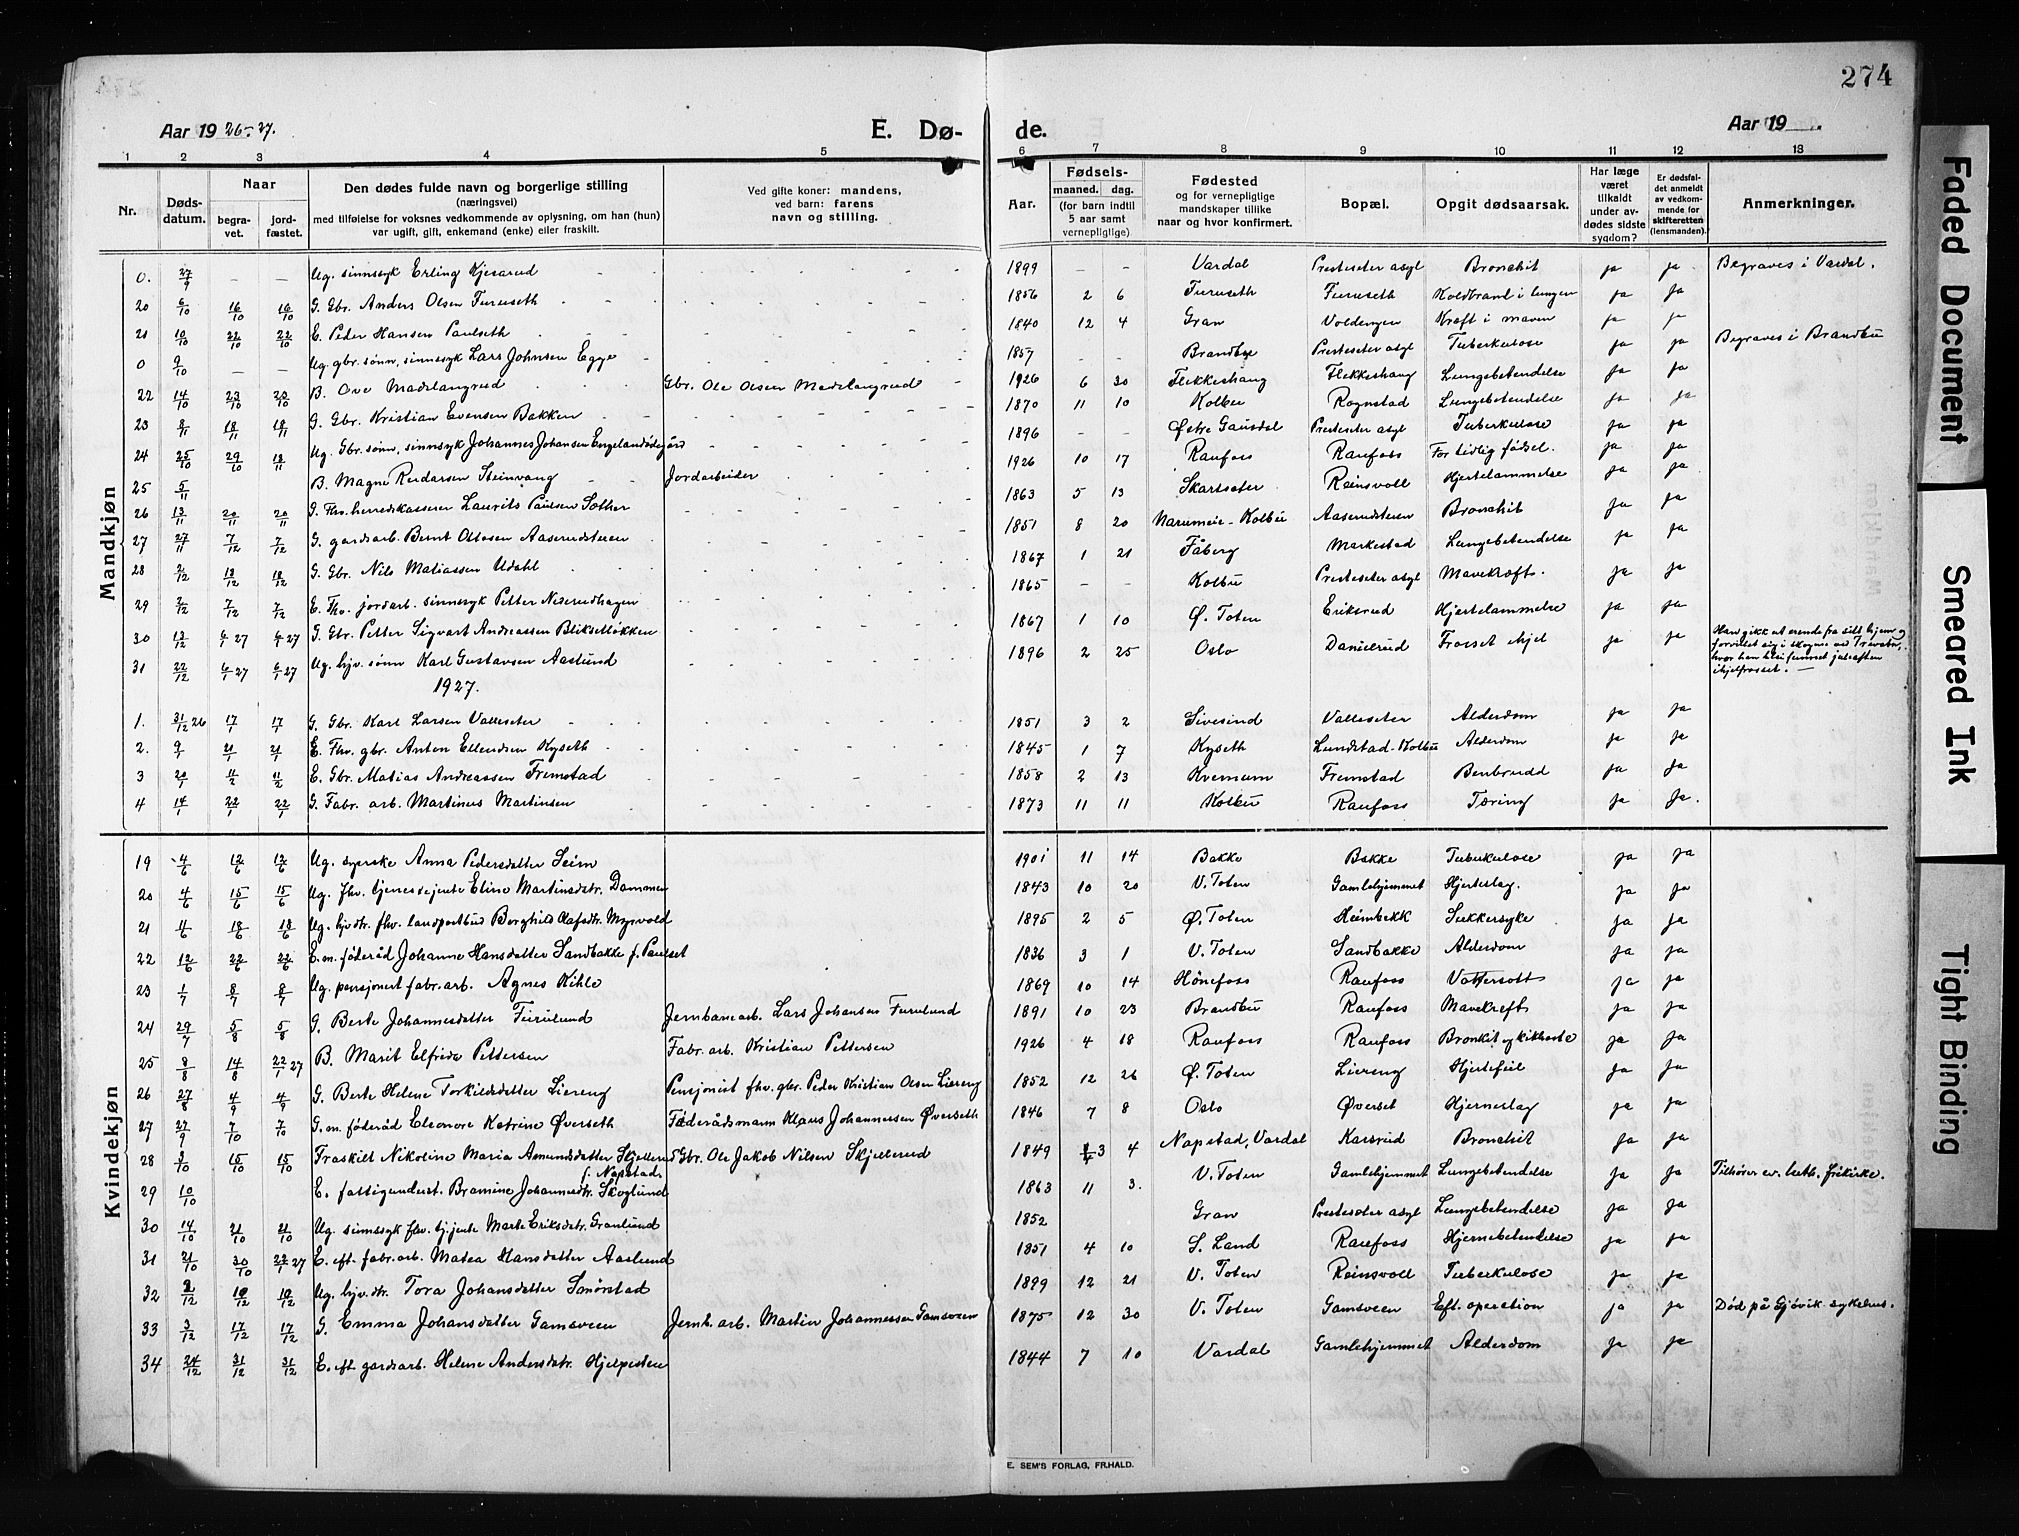 274
Aar 1926-27.
E. Dø- de.
Aar 19
1 2 3 4 5 6 7 8 9 10 11 12 13
Nr.
Døds-datum.
Naar
begra-vet.
jord-fæstet.
Den dødes fulde navn og borgerlige stilling
(næringsvei)
med tilføielse for voksnes vedkommende av oplysning, om han (hun)
var ugift, gift, enkemand (enke) eller fraskilt.
Ved gifte koner: mandens,
ved barn: farens
navn og stilling.
Aar.
Fødsels-
maaned. dag.
(for barn indtil
5 aar samt
vernepligtige).
Fødested
og for vernepligtige
mandskaper tillike
naar og hvor konfirmert.
Bopæl.
Opgit dødsaarsak.
Har læge
været
tilkaldt
under av-
dødes sidste
sygdom?
Er dødsfal-
det anmeldt
av vedkom-
mende for
skifteretten
(lensmanden).
Anmerkninger.
Mandkjøn
0. 27/9 — — Ug. sinnssyk Erling Kjesarud 1899 — — Vardal Presteseter asyl Bronchit ja ja Begraves i Vardal.
20 6/10 16/10 16/10 G. Gbr. Anders Olsen Furuseth 1856 2 6 Furuseth Furuseth Koldbrand i lungen ja ja
21 10/10 22/10 22/10 E. Peder Hansen Paulseth 1840 12 4 Gran Voldengen Kræft i maven ja ja
0 9/10 — — Ug. gbr. sønn, sinnssyk Lars Johnsen Egge 1857 — — Brandbu Presteseter asyl Tuberkulose ja ja Begraves i Brandbu
22 14/10 23/10 20/10 B. Ove Madslangrud Gbr. Ole Olsen Madslangrud 1926 6 30 Flekkeshaug Flekkeshaug Lungebetendelse ja ja
23 8/11 18/11 18/11 G. Gbr. Kristian Evensen Bakken 1870 11 10 Kolbu Rognstad Lungebetendelse ja ja
24 25/10 29/10 18/11 Ug. Gbr. sønn, sinnssyk Johannes Johansen Engelandødegård 1896 — — Østre Gausdal Presteseter asyl Tuberkulose ja ja
25 5/11 B. Magne Reidarsen Steinvang Jordarbeider 1926 10 17 Raufoss Raufoss For tidlig fødsel. ja ja
26 13/11 20/11 20/11 G. Fhv. herredskasserer Laurits Paulsen Sæther 1863 5 13 Skartseter Reinsvoll Hjertelammelse ja ja
27 27/11 7/12 7/12 G. gardsarb. Bernt Ottosen Aaserudsteren 1851 8 20 Narumeie - Kolbu Aaserudsteren Bronchit ja ja
28 2/12 13/12 18/12 G. Gbr. Nils Matiassen Udahl 1867 1 21 Fåberg Markestad Lungebetendelse ja ja
29 2/12 7/12 7/12 E. Fhv. jordarb. sinnssyk Petter Niserudhagen 1865 — — Kolbu Presteseter asyl Mavekræft. ja ja
30 13/12 6/1 27 6/1 27 G. Gbr. Petter Sigvart Andreassen Blikseth løkken 1867 1 10 Ø. Toten Eriksrud Hjertelammelse ja ja
31 22/12 6/1 27 6/1 27 Ug. hjv. sønn Karl Gustavsen Aaslund 1896 2 25 Oslo Danielrud Frosset ihjel ja ja Han gikk et erende fra sitt hjem og
forvillet sig i skogene ved
hvor han blev funnet juleaften
ihjelfrosset. —
1927.
1. 31/12 26 17/1 17/1 G. Gbr. Karl Larsen Valleseter 1851 3 2 Sivesind Valleseter Alderdom ja ja
2. 9/1 21/1 21/1 E. Fhv. gbr. Anton Ellendsen Kyseth 1845 1 7 Kyseth Lundstad - Kolbu Alderdom ja ja
3 20/1 11/2 11/2 E. Gbr. Matias Andreassen Fremstad 1858 2 13 Kvemum Fremstad Benbrudd ja ja
4 14/1 22/1 22/1 G. Fabr. arb. Martinus Martinsen 1873 11 11 Kolbu Raufoss Tæring ja ja.
Kvindekjøn
19 4/6 12/6 12/6 Ug. syerske Anna Pedersdatter Seim 1901 11 14 Bakke Bakke Tuberkulose ja ja
20 4/6 15/6 15/6 Ug. fhv. tjenestejente Eline Martinsdtr. Dammen 1843 10 20 V. Toten Gamlehjemmet Hjerteslag. ja ja
21 11/6 18/6 18/6 Ug. hjv. dtr. fhv. landpostbud Borghild Olafsdtr. Myrvold 1895 2 5 Ø. Toten Heimbekk Sukkersyke ja ja
22 12/6 22/6 22/6 E. m. føderåd Johanne Hansdatter Sandbakke f. Paulset 1836 3 1 V. Toten Sandbakke Alderdom ja ja
23 1/7 8/7 8/7 Ug. pensjonert fabr. arb. Agnes Kihle 1869 10 14 Hønefoss Raufoss Vattersott ja ja
24 29/7 5/8 5/8 G. Berte Johannesdatter Furulund Jernbanearb. Lars Johansen Furulund 1891 10 23 Brandbu Raufoss Mavekreft ja ja
25 8/8 14/8 22/1 27 B. Marit Elfrida Pettersen Fabr. arb. Kristian Pettersen 1926 4 18 Raufoss Raufoss Bronkit og kikhoste ja ja
26 27/8 4/9 4/9 G. Berte Helene Torkildsdatter Liereng Pensjonist fhv. gbr. Peder Kristian Olsen Liereng 1852 12 26 Ø. Toten Liereng Hjertefeil ja ja
27 27/9 7/10 7/10 G. m. føderåd Eleonore Katrine Øverseth Føderådsmann Klaus Johannessen Øverseth 1846 7 8 Oslo Øverset Hjerneslag ja ja
28 9/10 15/10 15/10 Fraskilt Nikoline Maria Amundsdatter Skjellerud f. Napstad Gbr. Ole Jakob Nilsen Skjellerud 1849 3 4 Napstad, Vardal Karsrud Bronchit ja ja
29 10/10 E. fattigunderst. Bramine Johannesdtr. Skoglund 1863 11 3. V. Toten Gamlehjemmet Lungebetendelse ja ja Tilhører ev. luth. frikirke.
30 14/10 21/10 21/10 Ug. sinnssyk fhv. tjente Marte Eriksdtr. Granlund 1852 Gran Presteseter asyl Lungebetendelse ja ja
31 21/10 30/10 22/1 27 E. eft. fabr. arb. Matea Hansdatter Aaslund 1851 4 10 S. Land Raufoss Hjernebetendelse ja ja
32 2/12 10/12 10/12 Ug. hjv. dtr. Tora Johansdatter Smørstad 1899 12 21 V. Toten Reinsvoll Tuberkulose ja ja
33 3/12 17/12 17/12 G. Emma Johansdatter Gamsveen Jernb. arb. Martin Johannessen Gamsveen 1875 12 30 V. Toten Gamsveen Eft. operation ja ja Død på Gjøvik sykehus.
34 24/12 31/12 31/12 E. eft. gardsarb. Helene Andersdtr. Hjelpesten 1844 7 10 Vardal Gamlehjemmet Alderdom ja ja
E. SEM'S FORLAG, FR.HALD.
Faded Document
Smeared Ink
Tight Binding